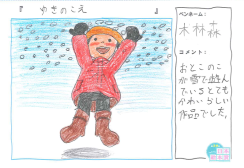 『 ゆきのこえ 』
ペンネーム：
木林森
コメント：
おとこのこ
が雪で遊ん
でいるとても
かわいらしい
作品でした。